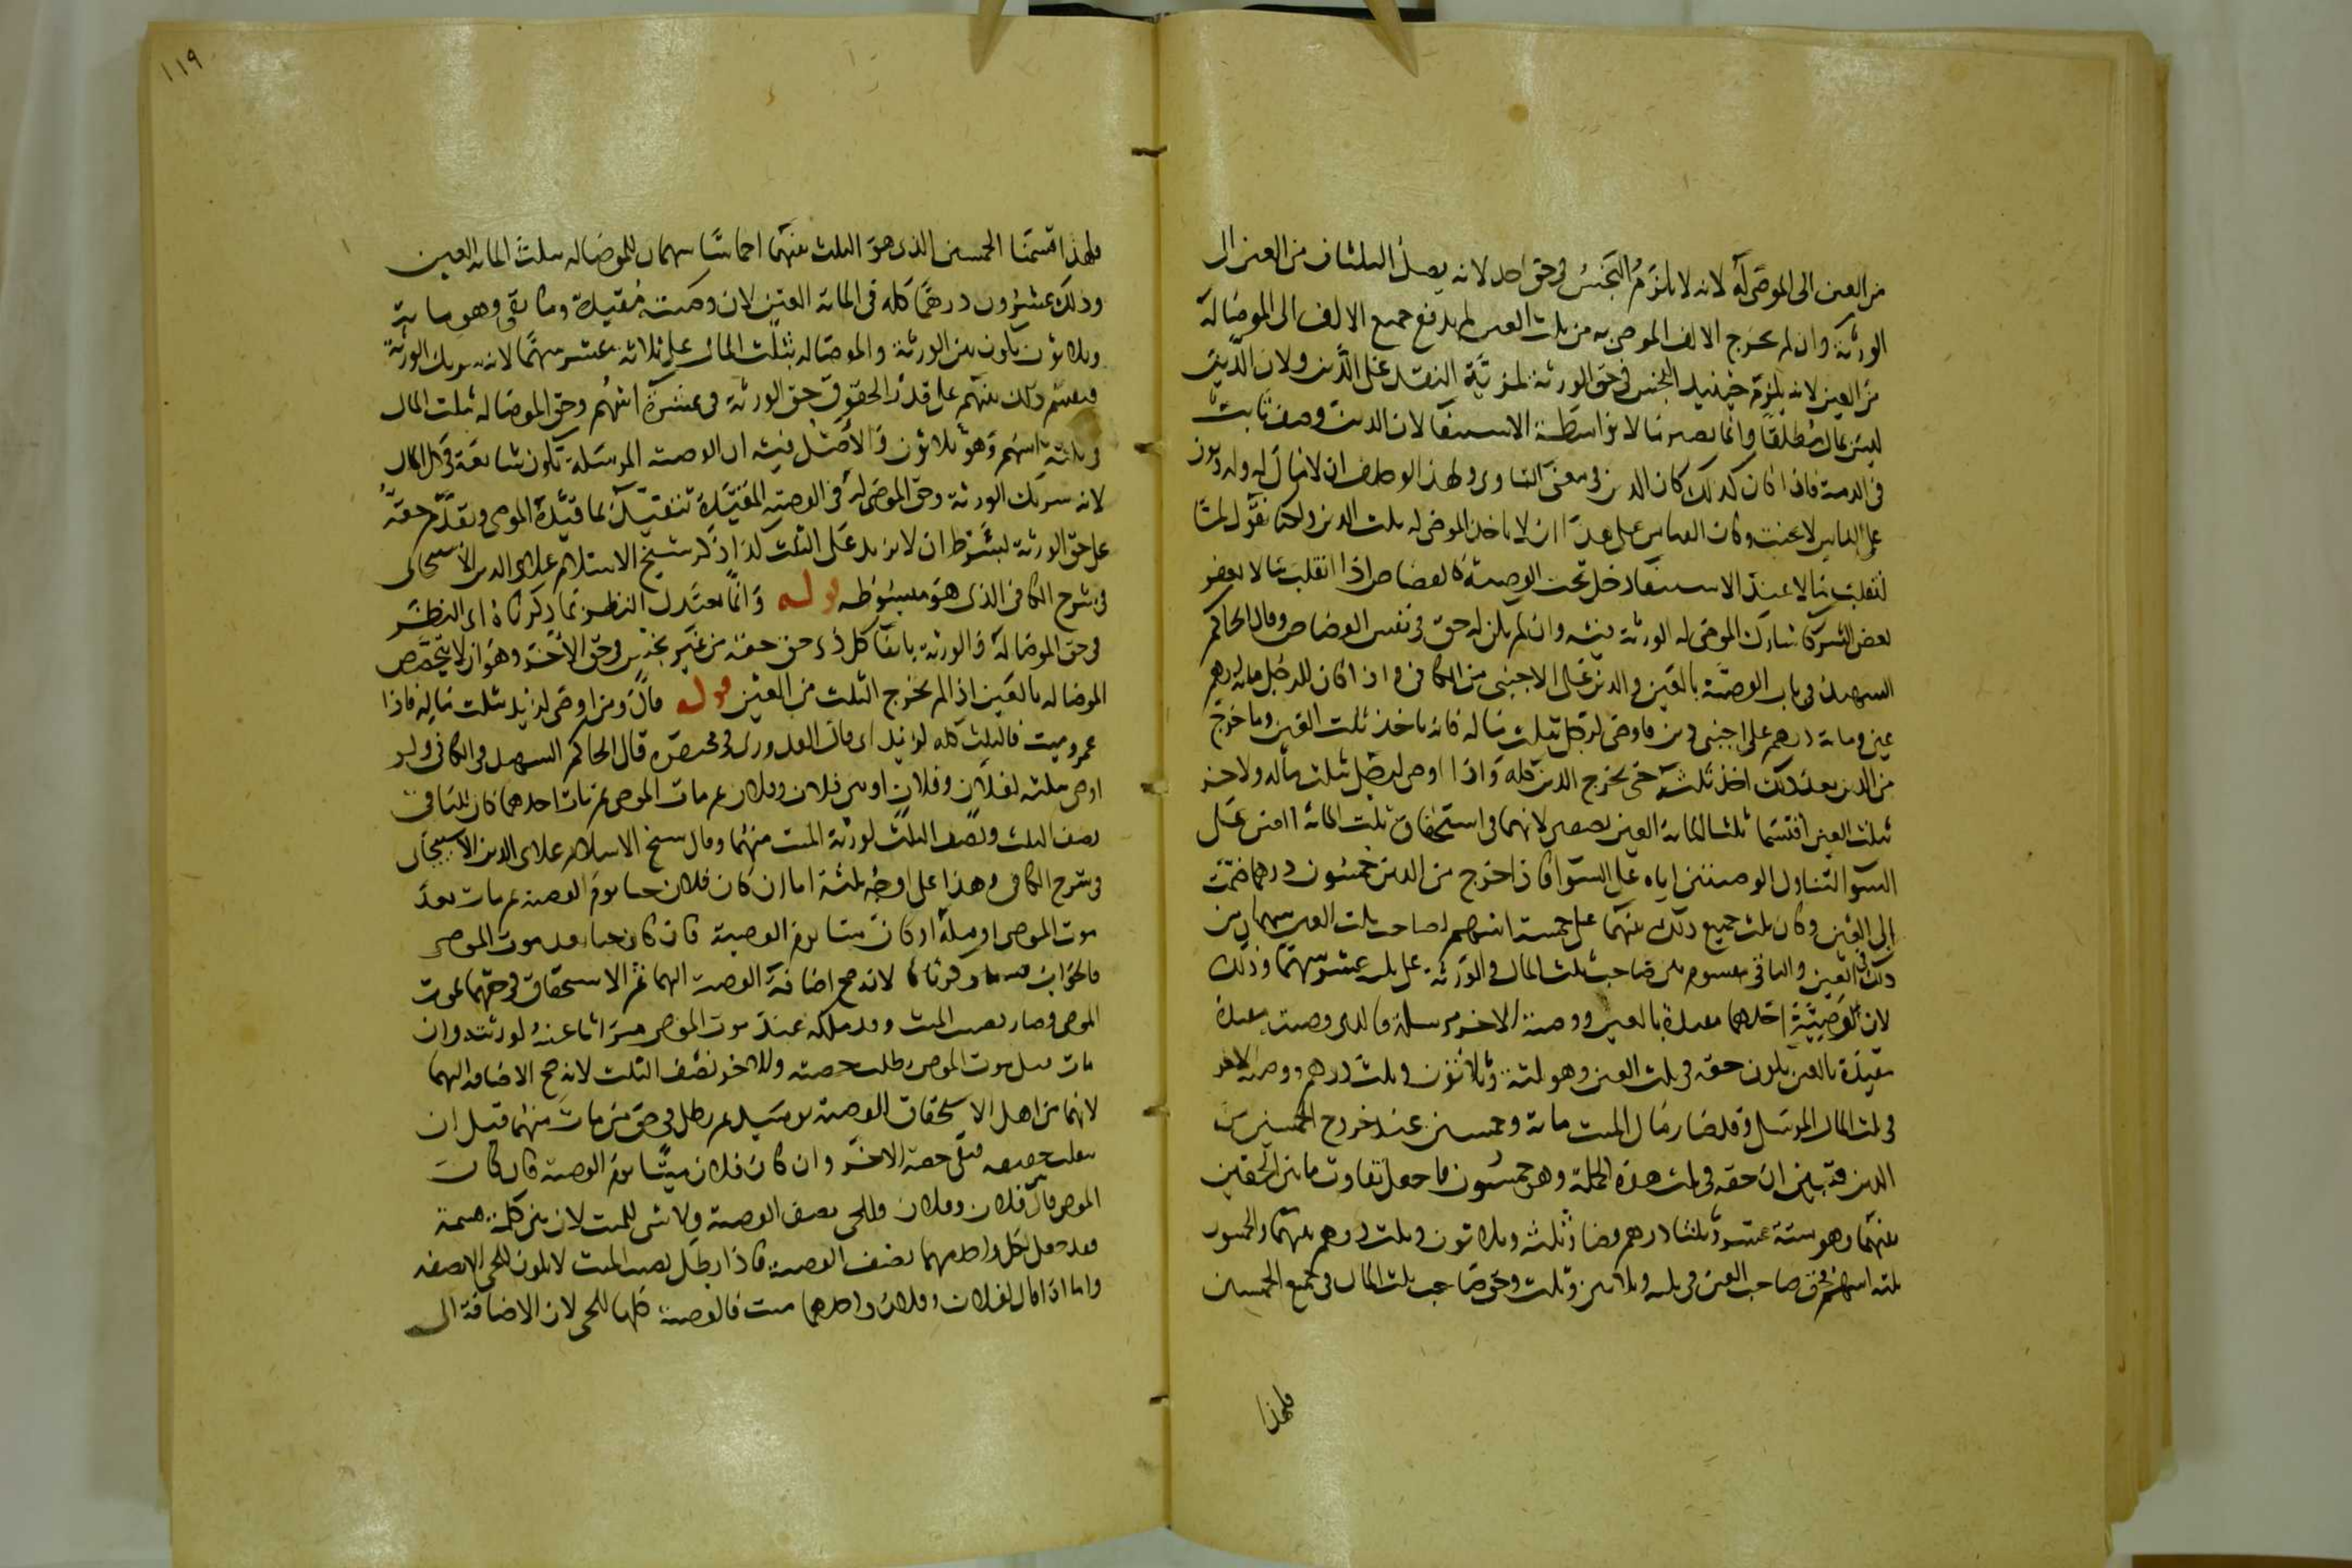 من العين الى الموصى له لانه لا يلزم البخس فى حق احد لانه يصل الثلثان من العين الى
الورثة وان لم يخرج الالف الموصى به من ثلث العين لم يدفع جميع الالف الى الموصى له
من العين لانه يلزم حينئذ البخس فى حق الورثة لمزية النقد على الدين ولان الدين
ليس بمال مطلقا وانما يصير مالا بواسطة الاستيفا لان الدين وصف ثابت
فى الذمة فاذا كان كذلك كان الدين فى معنى التاوى ولهذا لو حلف ان لا مال له وله ديون
على الناس لا يحنث وكان القياس على هذا ان لا ياخذ الموصى له ثلث الدين ولكنا نقول لما
انقلب مالا عند الاستيفا دخل تحت الوصية كالقصاص اذا انقلب مالا بعفو
بعض الشركا شارك الموصى له الورثة فيه وان لم يكن له حق فى نفس القصاص وقال الحاكم
الشهيد فى باب الوصية بالعين والدين على الاجنبى من الكافى واذا كان للرجل مائة درهم
عين ومائة درهم على اجنبى دين فاوصى لرجل بثلث ماله فانه ياخذ ثلث العين وما خرج
من الدين بعد ذلك اخذ ثلثه حتى يخرج الدين كله واذا اوصى لرجل بثلث ماله ولاخر
بثلث العين اقتسما ثلث المائة العين نصفين لانهما فى استحقاق ثلث المائة العين على
السوا لتناول الوصيتين اياه على السوا فاذا خرج من الدين خمسون درهما ضمت
الى العين وكان ثلث جميع ذلك بينهما على خمسة اسهم لصاحب ثلث العين سهمان من
ذلك فى العين والباقى مقسوم بين صاحب ثلث المال والورثة على ثلثة عشر سهما وذلك
لان الوصية احدهما مقيدة بالعين ووصية الاخر مرسلة فالذى وصيته مقيدة
مقيدة بالعين يكون حقه فى ثلث العين وهو ثلثة وثلاثون وثلث درهم ووصية الاخر
فى ثلث المال المرسل وقد صار مال الميت مائة وخمسين عند خروج الخمسين من
الدين فتبين ان حقه فى ثلث هذه الجملة وهو خمسون فاجعل تفاوت ما بين الحقين
بينهما وهو ستة عشر وثلثا درهم فصار ثلثه وثلاثون وثلث درهم بينهما والخمسون
ثلثة اسهم فحق صاحب العين فى ثلثه وثلاثين وثلث وحق صاحب ثلث المال فى جميع الخمسين
فلهذا
١١٩
فلهذا قسمنا الخمسين الذى هو الثلث بينهما اخماسا سهمان للموصى له بثلث المائة العين
وذلك عشرون درهما كله فى المائة العين لان وصيته مقيدة وما بقى وهو مائة
وثلاثون يكون بين الورثة والموصى له بثلث المال على ثلاثة عشر سهما لانه شريك الورثة
فيقسم ذلك بينهم على قدر الحقوق حق الورثة فى عشرة اسهم وحق الموصى له بثلث المال
فى ثلاثة اسهم وهو ثلاثون والاصل فيه ان الوصية المرسلة تكون شائعة فى كل المال
لانه شريك الورثة وحق الموصى له فى الوصية المقيدة تتقيد بما قيده الموصى ويقدم حقه
على حق الورثة بشرط ان لا يزيد على الثلث كذا ذكر شيخ الاسلام علاى الدين الاسبيجابى
فى شرح الكافى الذى هو مبسوطه قوله وانما يعتدل النظر بما ذكرناه اى النظر
فى حق الموصى له والورثة بايفا كل ذى حق حقه من غير بخس فى حق الاخر وهو ان لا يتخصص
الموصى له بالعين اذا لم يخرج الثلث من العين قوله قال ومن اوصى لزيد بثلث ماله فاذا
عمرو ميت فالثلث كله لزيد اى قال القدورى فى مختصره قال الحاكم الشهيد فى الكافى ولو
اوصى بثلثه لفلان وفلان او بين فلان وفلان ثم مات الموصى ثم مات احدهما كان للباقى
نصف الثلث ونصف الثلث لورثة الميت منهما وقال شيخ الاسلام علاى الدين الاسبيجابى
فى شرح الكافى وهذا على اوجه ثلثة اما ان كان فلان حيا يوم الوصية ثم مات بعد
موت الموصى او قبله او كان ميتا يوم الوصية فان كان حيا بعد موت الموصى
فالجواب ما ذكرناه لانه صح اضافة الوصية اليهما ثم الاستحقاق فى حقهما بموت
الموصى وصار نصيب الميت وقد ملكه عند موت الموصى ميراثا عنه لورثته وان
مات قبل موت الموصى بطلت حصته وللاخر نصف الثلث لانه صح الاضافة اليهما
لانهما من اهل الاستحقاق للوصية يومئذ ثم بطل فى حق من مات منهما قبل ان
فبقى حصة الاخر وان كان فلان ميتا يوم الوصية فان كان
الموصى قال بين فلان وفلان فللحى نصف الوصية ولا شى للميت لان بين كلمة قسمة
فقد جعل لكل واحد منهما نصف الوصية فاذا بطل نصيب الميت لا يكون للحى الا نصفه
واما اذا قال لفلان وفلان واحدهما ميت فالوصية كلها للحى لان الاضافة الى